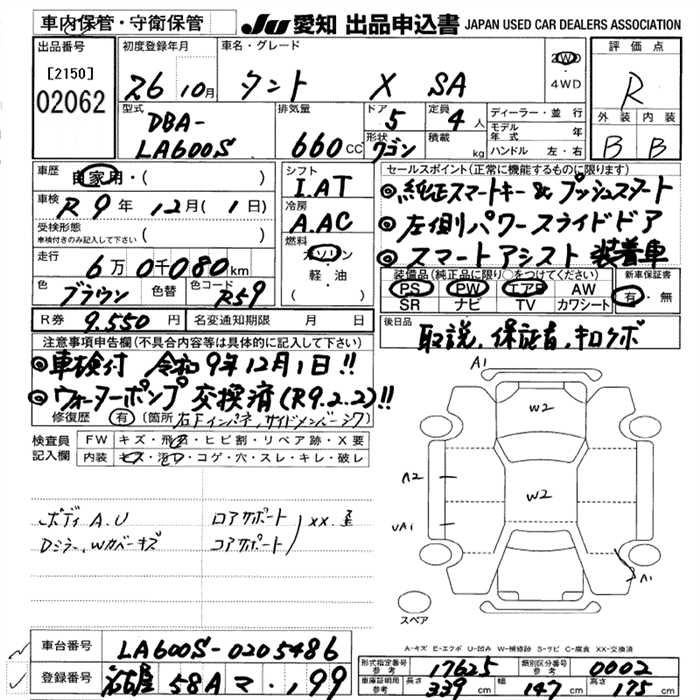 車内保管・守衛保管
JU 愛知 出品申込書 JAPAN USED CAR DEALERS ASSOCIATION
出品番号
[2150]
02062
初度登録年月
26 10月
車名・グレード
タント X SA
2WD
4WD
評価点
R
外装 内装
B B
型式
DBA-
LA600S
排気量
660 cc
ドア
5
定員
4人
形状
ワゴン
積載
kg
ディーラー・並行
モデル年式 年
ハンドル 左・右
車歴
自家用・( )
車検
R 9年 12月( 1日)
受検形態
車検付きのみ記入して下さい ( )
走行
6万0千080km
色
ブラウン
色替
色コード
R59
シフト
I.AT
冷房
A.AC
燃料
ガソリン
軽・油
( )
R券 9.550円
名変通知期限 月 日
セールスポイント(正常に機能するものに限ります)
◎純正スマートキー&プッシュスタート
◎左側パワースライドドア
◎スマートアシスト装着車
装備品(純正品に限り○をつけてください)
PS PW エアB AW
SR ナビ TV カワシート
新車保証書
有・無
後日品
取説、保証書、キロケボ
注意事項申告欄(不具合内容等は具体的に記入して下さい)
◎車検付 令和9年12月1日!!
◎ウォーターポンプ交換済(R9.2.2)!!
修復歴 有 (箇所 右Fインパネ,サイドメンバーシワ)
検査員記入欄
FW キズ・飛石・ヒビ割・リペア跡・X要
内装 キズ・汚れ・コゲ・穴・スレ・キレ・破レ
ボディA.U
Dミラー、Wカバーキズ
ロアサポート
コアサポート
XX.
A1
W2
W2
A2
UA1
A1
スペア
A-キズ E-エクボ U-凹み W-補修跡 S-サビ C-腐食 XX-交換済
車台番号 LA600S-0205486
登録番号 名古屋 58A マ・199
形式指定番号 参考 17625
類別区分番号 参考 0002
車庫証明用 参考 長さ 339cm 幅 147cm 高さ 175cm